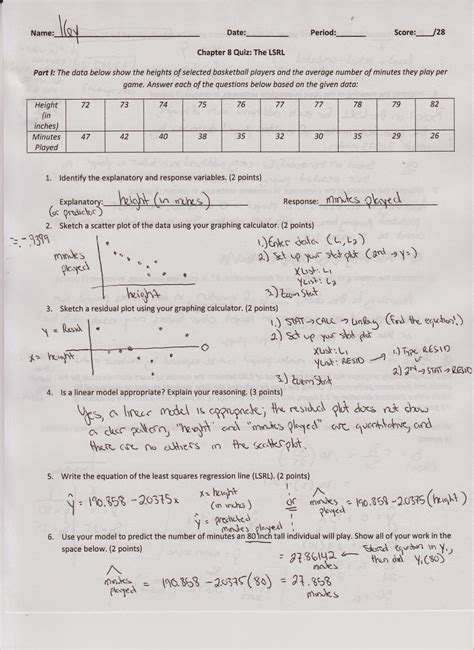 Name: Key Date: Period: Score: /28
Chapter 8 Quiz: The LSRL
Part I: The data below show the heights of selected basketball players and the average number of minutes they play per
game. Answer each of the questions below based on the given data:
Height (in inches) 72 73 74 75 76 77 77 78 79 82
Minutes Played 47 42 40 38 35 32 30 35 29 26
1. Identify the explanatory and response variables. (2 points)
Explanatory: height (in inches) Response: minutes played
(or predictor)
2. Sketch a scatter plot of the data using your graphing calculator. (2 points)
r = -.9399
minutes played
height
1.) Enter data (L1, L2)
2) Set up your stat plot (2nd → y=)
Xlist: L1
Ylist: L2
3.) Zoom Stat
3. Sketch a residual plot using your graphing calculator. (2 points)
y = Resid
x = height
1.) STAT → CALC → LinReg (Find the equation!)
2) Set up your stat plot
Xlist: L1
Ylist: RESID → 1) Type RESID
2) 2nd → STAT → RESID
3.) Zoom Stat
4. Is a linear model appropriate? Explain your reasoning. (3 points)
Yes, a linear model is appropriate; the residual plot does not show
a clear pattern, "height" and "minutes played" are quantitative, and
there are no outliers in the scatterplot.
5. Write the equation of the least squares regression line (LSRL). (2 points)
ŷ = 190.858 - 2.0375x
x = height (in inches)
ŷ = predicted minutes played
or minutes played = 190.858 - 2.0375 (height)
6. Use your model to predict the number of minutes an 80 inch tall individual will play. Show all of your work in the
space below. (2 points)
= 27.86142 ← Stored equation in Y1, then did Y1(80)
minutes played = 190.858 - 2.0375 (80) = 27.858 minutes